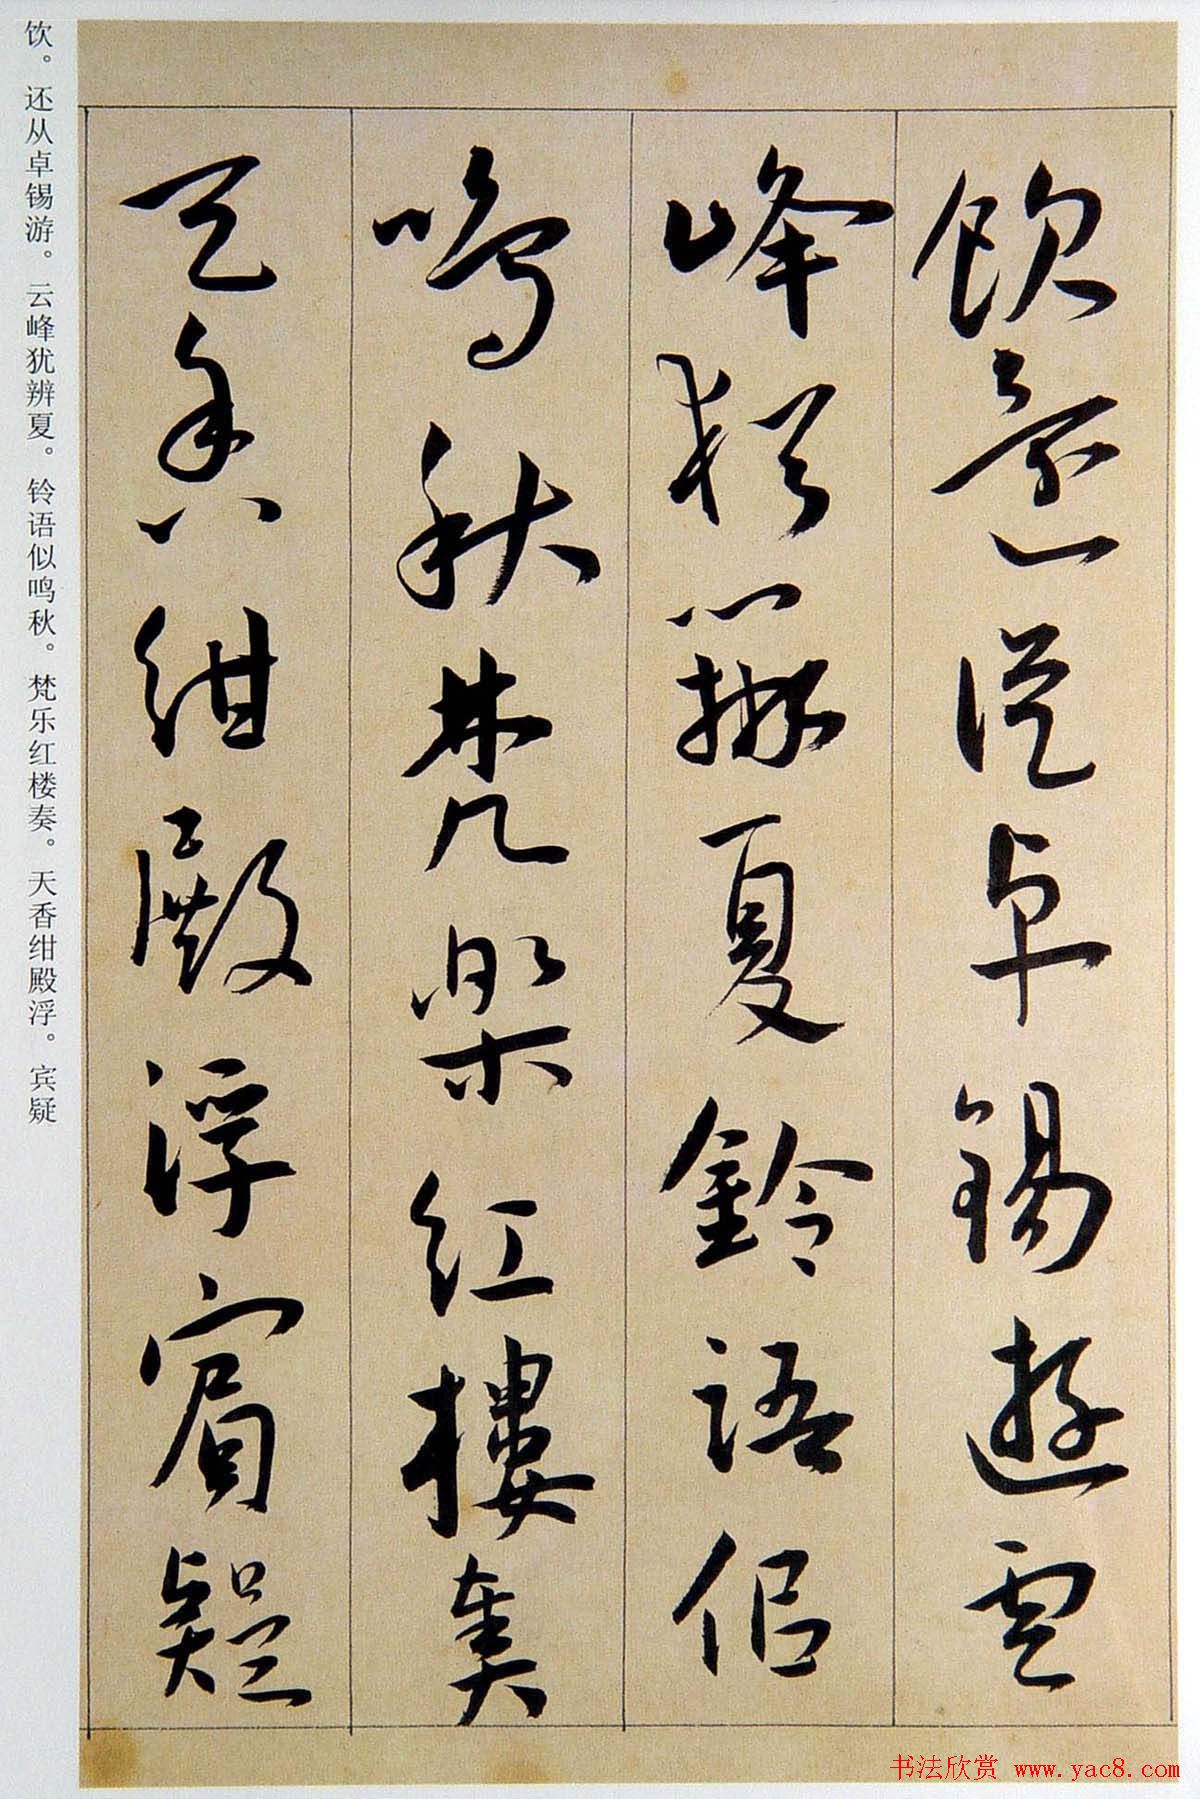 飲還從卓錫遊雲
峰猶辨夏鈴語佀
鳴秋梵樂紅樓奏
天香紺殿浮賓疑
饮。还从卓锡游。云峰犹辨夏。铃语似鸣秋。梵乐红楼奏。天香绀殿浮。宾疑
书法欣赏 www.yac8.com